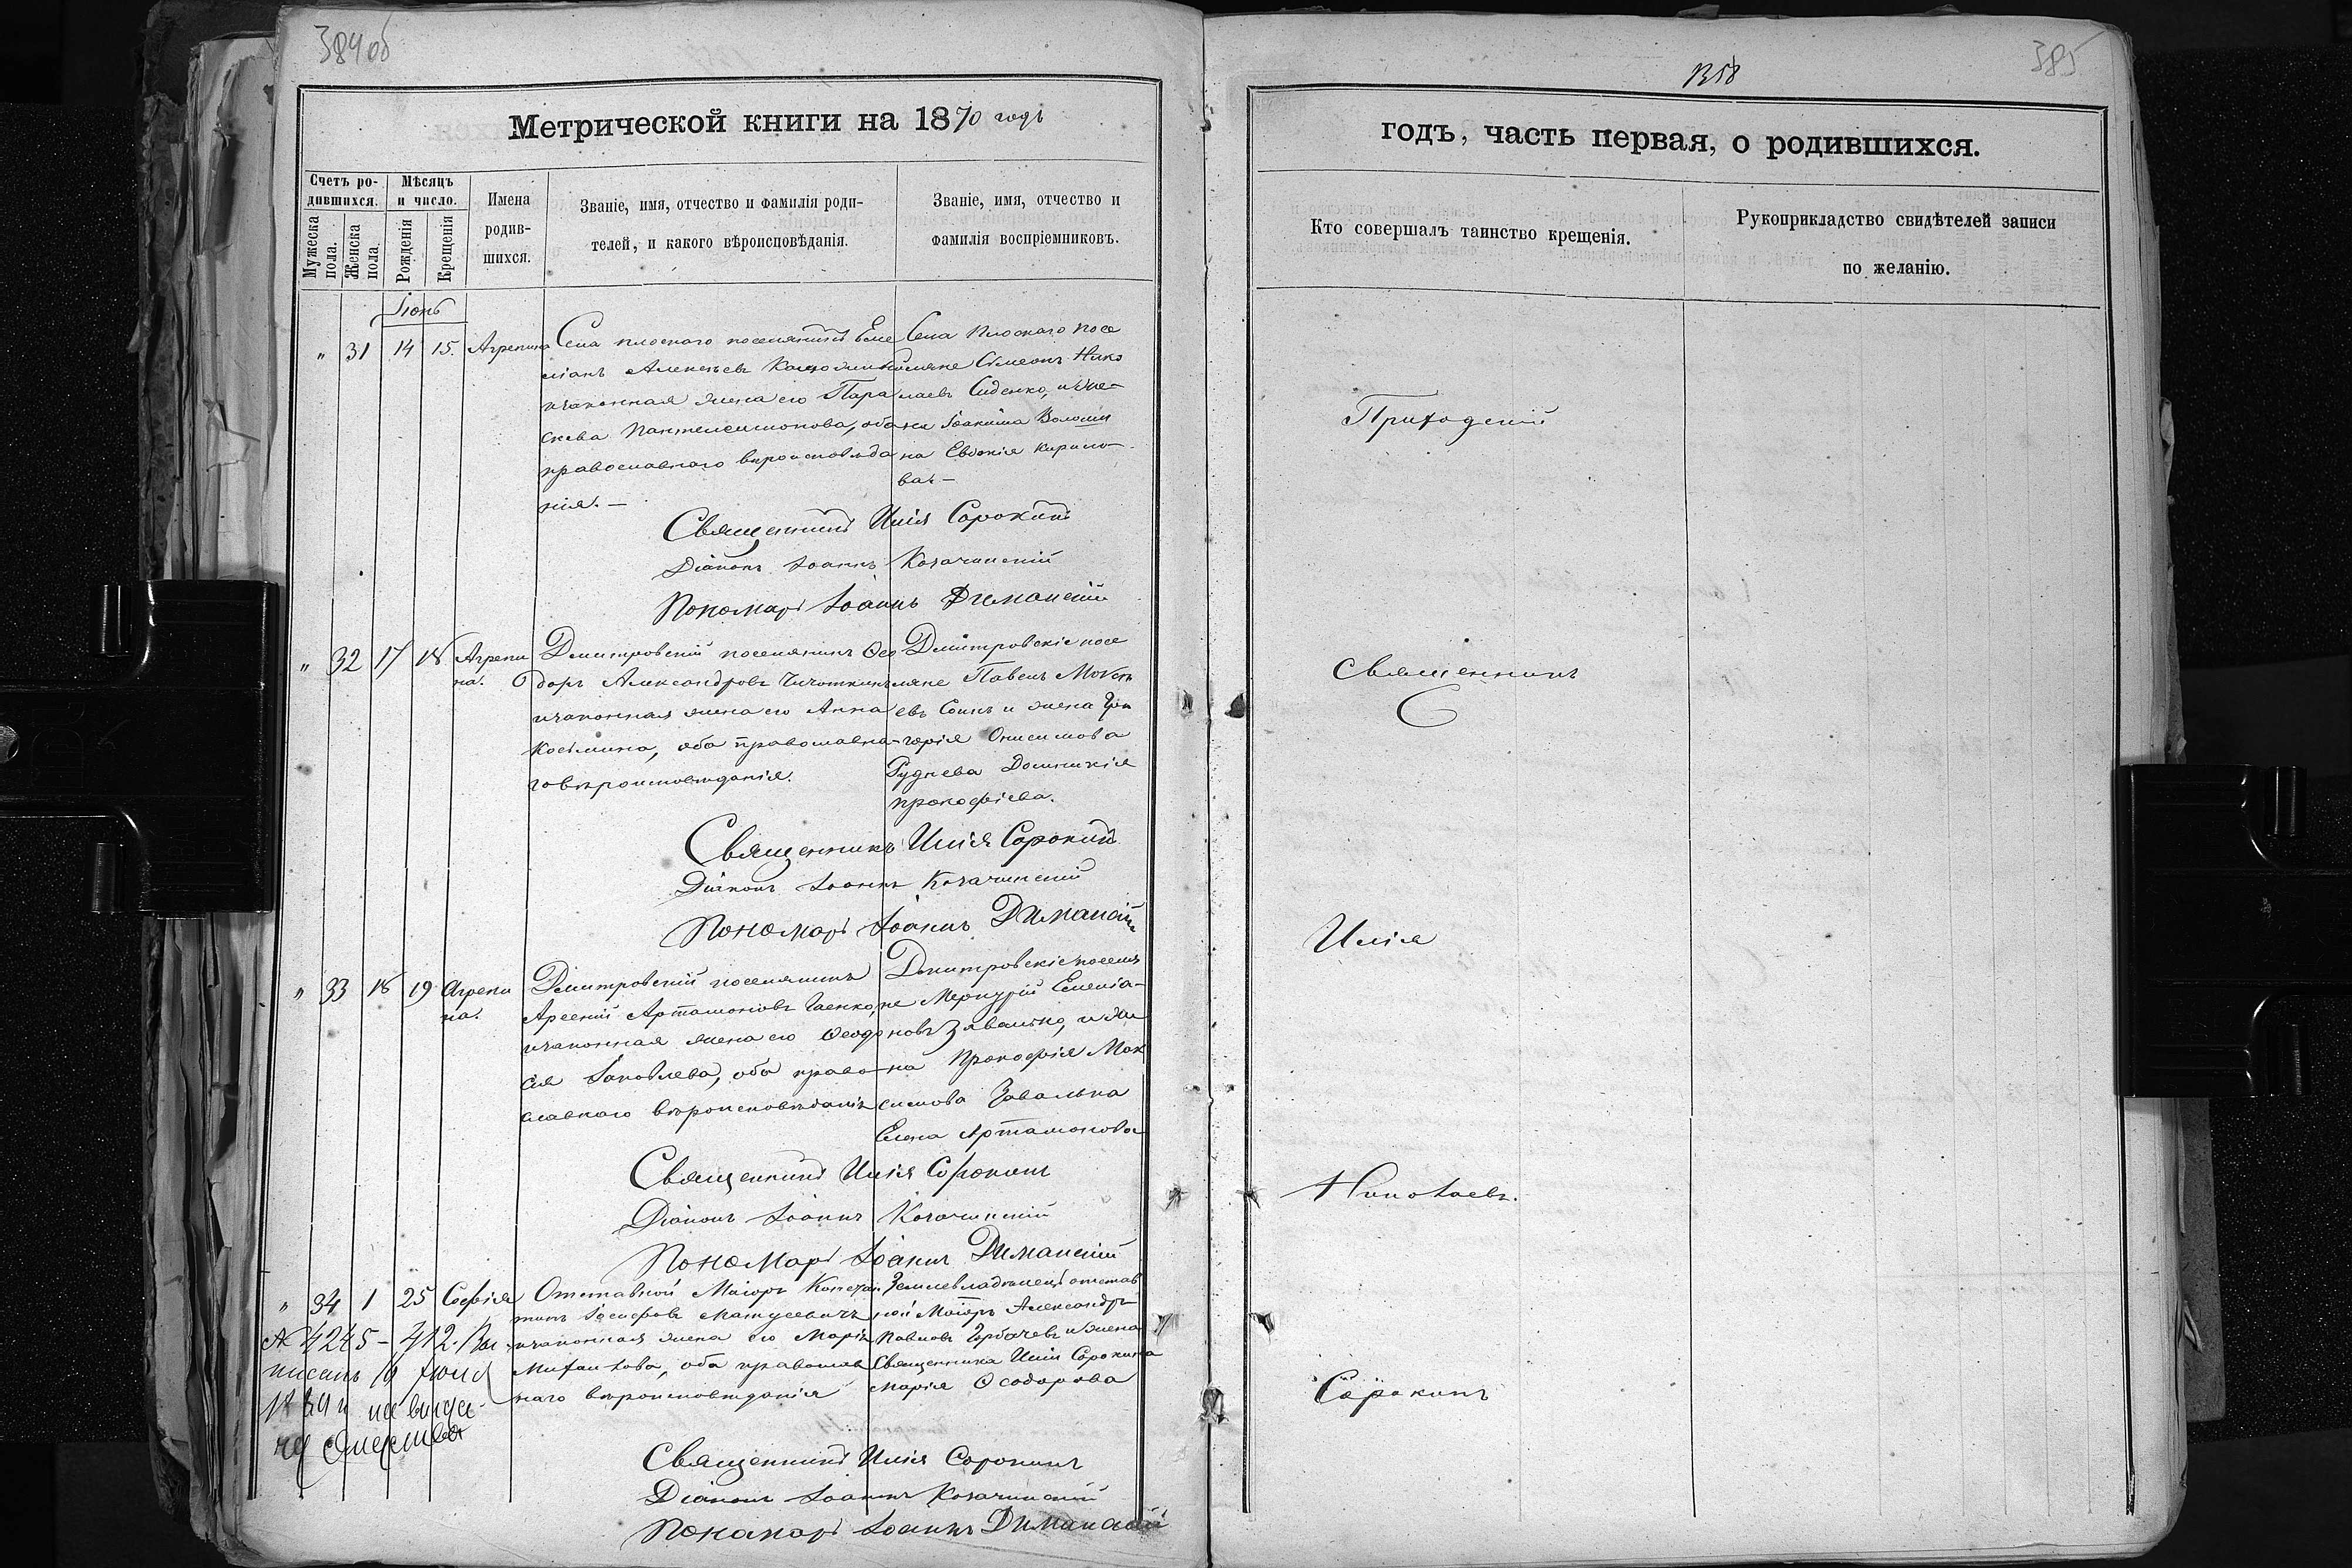 384об
Метрической книги на 1870 годъ
Счетъ ро-
дившихся.
Мѣсяцъ
и число.
Мужеска
пола.
Женска
пола.
Рожденія
Крещенія
Имена
родив-
шихся.
Званіе, имя, отчество и фамилія роди-
телей, и какого вѣроисповѣданія.
Званіе, имя, отчество и
фамилія воспріемниковъ.
Іюнь
" 31 14 15. Агрепина
Села плоского поселянинъ Еме
ліанъ Алексѣевъ
изаконная жена его Пара
скева Пантелеимонова, оба
православного вѣроисповѣда
нія. —
Села Плоского посе
ляне Сѵмеонъ Нико
лаевъ Сиденко, и же-
на Іоакима Волоши
на Евдокія Кирило-
ва. —
Священникъ Илія Сорокинъ
Діаконъ Іоаннъ Козачинскій
Пономарь Іоаннъ Диманскій
" 32 17 18 Агрепи
на.
Дмитровскій поселянинъ Ѳео
доръ Александровъ
изаконная жена его Анна
Косьмина, оба православна-
говѣроисповѣданія.
Дмитровскіе посе
ляне Павелъ Мокѣ
евъ Соинъ и жена Гри
горія Онисимова
Руднева Домникія
прокофіева.
Священникъ Илія Сорокинъ
Діаконъ Іоаннъ Козачинскій
Пономарь Іоаннъ Диманскій
" 33 18 19 Агрепи
на.
Дмитровскій поселянинъ
Арсеній Артамоновъ Гаенко,
изаконная жена его Ѳеодо
сія Іаковлева, оба право-
славного вѣроисповѣданія
Дмитровскіе поселя
не Меркурій Емелія-
новъ Завалько, и же
на Прокофія Мак
симова Завалька
Елена Артамонова
Священникъ Илія Сорокинъ
Діаконъ Іоаннъ Козачинскій
Пономарь Іоаннъ Диманскій
" 34 1 25 Софія
Отставной Маіоръ Констан
тинъ Іосифовъ Матусевичъ
изаконная жена его Марія
Михаилова, оба православ
наго вѣроисповѣданія
Землевладѣлецъ отстав
ной Маіоръ Александръ
Павловъ Горбачевъ и жена
Священника Иліи Сорокина
Марія Ѳеодорова
№ 4245 - 412. Вы
писанъ
Священникъ Илія Сорокинъ
Діаконъ Іоаннъ Козачинскій
Пономарь Іоаннъ Диманскій
1358
385
годъ, часть первая, о родившихся.
Кто совершалъ таинство крещенія.
Рукоприкладство свидѣтелей записи
по желанію.
Приходскій
Священникъ
Илія
Николаевъ.
Сорокинъ